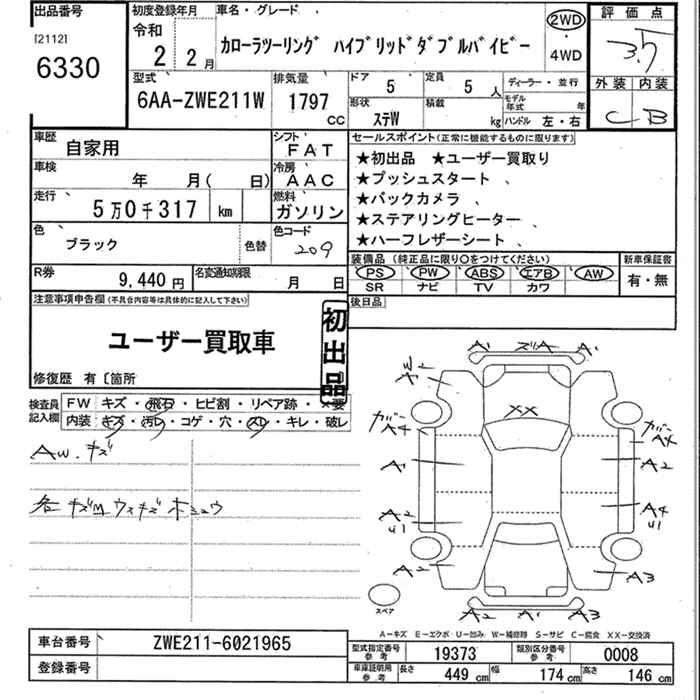 出品番号
[2112]
6330
初度登録年月
令和
2 2月
車名・グレード
カローラツーリング ハイブリッドダブルバイビー
2WD
・
4WD
評価点
3.5
外装 内装
C B
型式
6AA-ZWE211W
排気量
1797
CC
ドア
5
定員
5人
形状
ステW
積載
kg
ディーラー・並行
モデル年式 年
ハンドル 左・右
車歴
自家用
シフト
FAT
車検
年 月( 日)
冷房
AAC
走行
5万0千317 km
燃料
ガソリン
色
ブラック
色替
色コード
209
R券
9,440円
名変通知期限
月 日
セールスポイント(正常に機能するものに限ります)
★初出品 ★ユーザー買取り
★プッシュスタート 、
★バックカメラ 、
★ステアリングヒーター 、
★ハーフレザーシート 、
装備品 (純正品に限り○をつけてください)
PS PW ABS エアB AW
SR ナビ TV カワ
新車保証書
有・無
後日品
注意事項申告欄(不具合内容等は具体的に記入して下さい)
ユーザー買取車
初出品
修復歴 有〔箇所
検査員記入欄
FW キズ・飛石・ヒビ割・リペア跡・×要
内装 キズ・汚レ・コゲ・穴・スレ・キレ・破レ
AW.キズ
各キズMウスキズホシュウ
A1 ズリA A1
W2
A1
XX
ガバー
A4
ガバー
A4
A1
A2
A2
U1
A4
U1
A2
A3
A2 A1 A2
スペア
A-キズ E-エクボ U-凹み W-補修跡 S-サビ C-腐食 XX-交換済
車台番号
ZWE211-6021965
登録番号
型式指定番号
参考
19373
類別区分番号
参考
0008
車庫証明用
参考
長さ 449 cm 幅 174 cm 高さ 146 cm